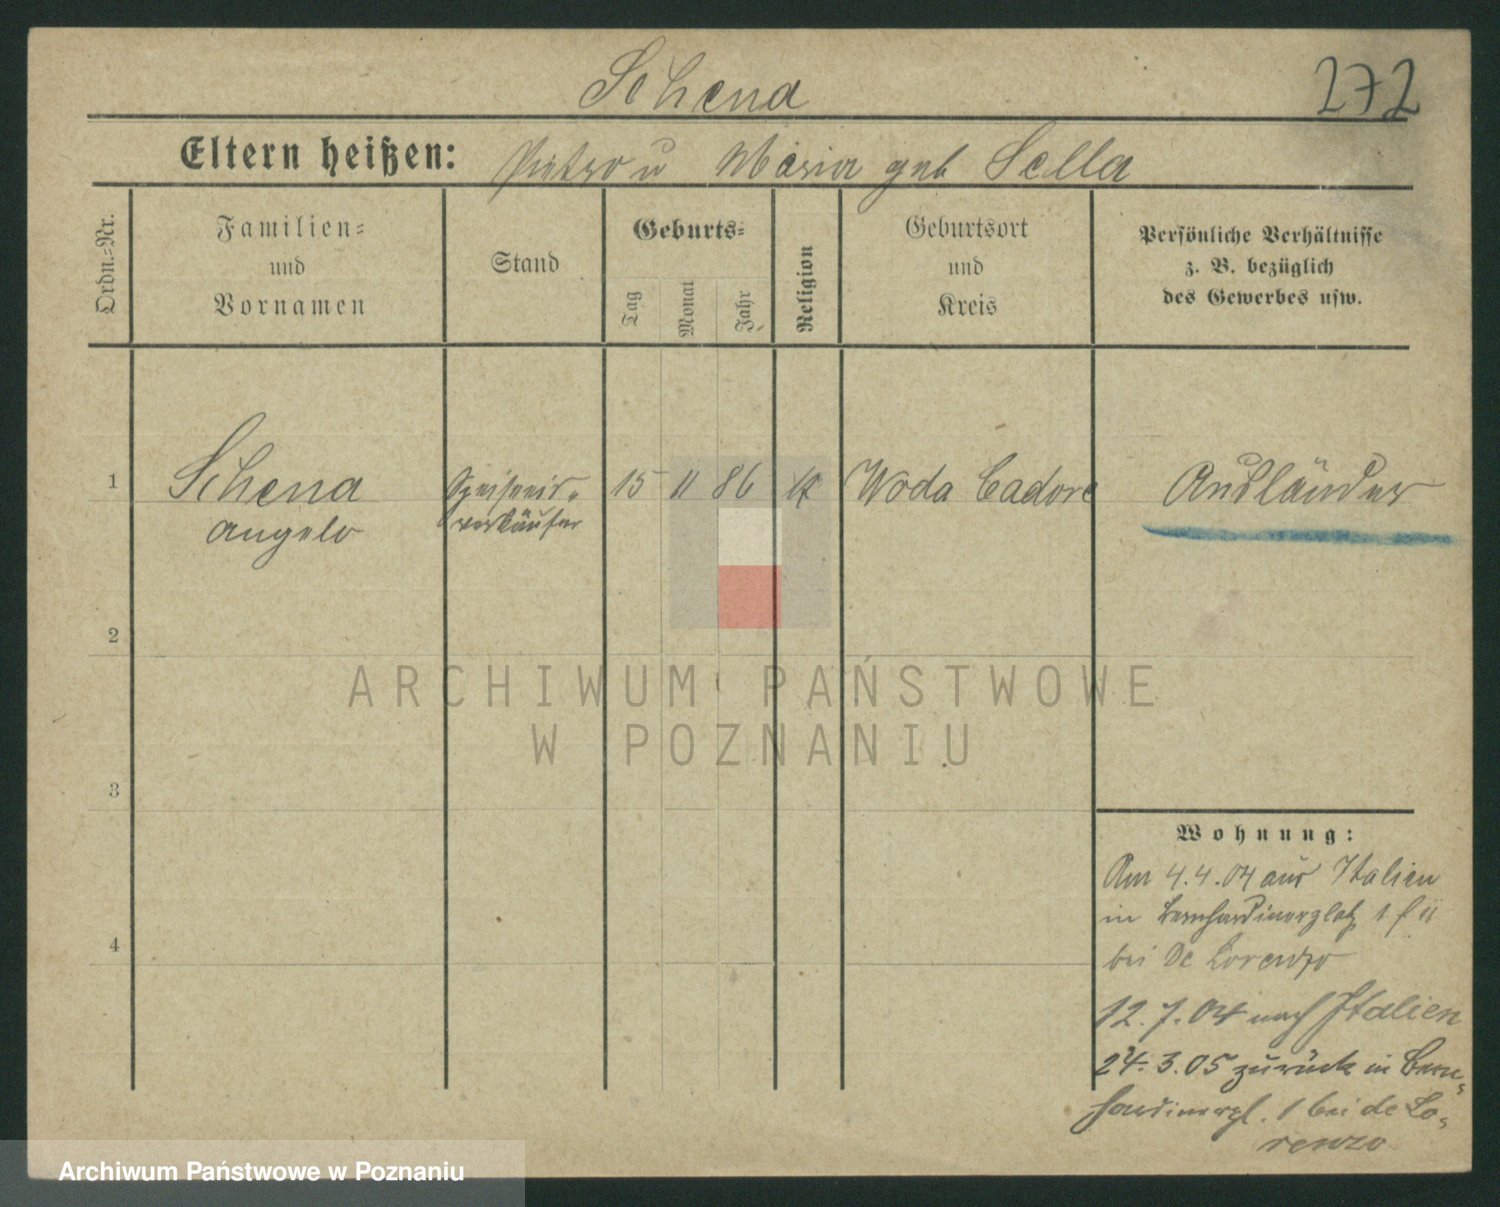 Schena
272
Eltern heißen: Pietro u Maria geb Sella
Ordn.=Nr.
Familien=
und
Vornamen
Stand
Geburts=
Tag
Monat
Jahr
Religion
Geburtsort
und
Kreis
Persönliche Verhältnisse
z. B. bezüglich
des Gewerbes usw.
1
Schena
Angelo
Speiseeis-
verkäufer
15 11 86
Woda Cadore
Ausländer
2
3
4
Wohnung:
Am 4.4.04 aus Italien
in Bernhardinerplatz 1
bei De Lorenzo
12.7.04 nach Italien
24.3.05 zurück in Bern-
hardinerpl. 1 bei de Lo-
renzo
ARCHIWUM PAŃSTWOWE
W POZNANIU
Archiwum Państwowe w Poznaniu